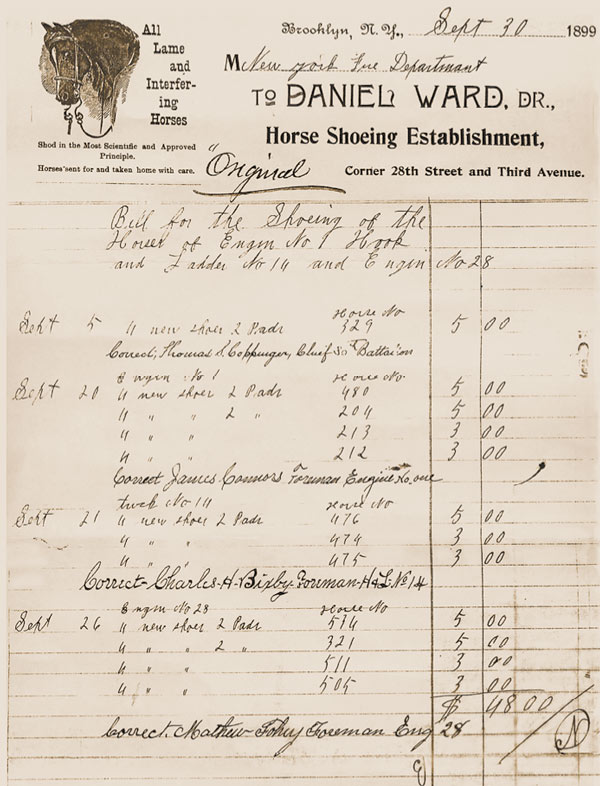 All
Lame
and
Interfer-
ing
Horses
Shod in the Most Scientific and Approved
Principle.
Horses sent for and taken home with care.
Brooklyn, N. Y., Sept 30 1899
M New york Fire Departmant
TO DANIEL WARD, DR.,
Horse Shoeing Establishment,
"Original
Corner 28th Street and Third Avenue.
Bill for the Shoeing of the
Horses of Engin No 1 Hook
and Ladder No 14 and Engin No 28
Horse No
Sept 5 4 new shoes 2 Pads 329 5 00
Correct, Thomas S. Coppinger, Chief Battalion
Engin No 1 Horse No
Sept 20 4 new shoes 2 Pads 480 5 00
4 " " 2 " 204 5 00
4 " " 213 3 00
4 " " 212 3 00
Correct James Connors Foreman Engine No. one
truck No 14 Horse No
Sept 21 4 new shoes 2 Pads 476 5 00
4 " " 474 3 00
4 " " 475 3 00
Correct-Charles-H-Bixby-Foreman-H&L-No 14
Engin No 28 Horse No
Sept 26 4 new shoes 2 Pads 534 5 00
4 " " 2 " 321 5 00
4 " " 511 3 00
4 " " 505 3 00
$ 48 00
Correct. Mathew Foreman Eng 28
N